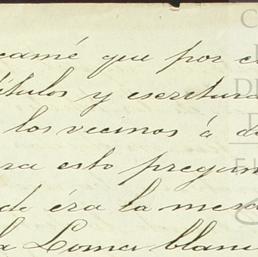 camé que por es
ítulos y escritura
los vecinos á da
ra esto pregun
de éra la mer
la Loma blan